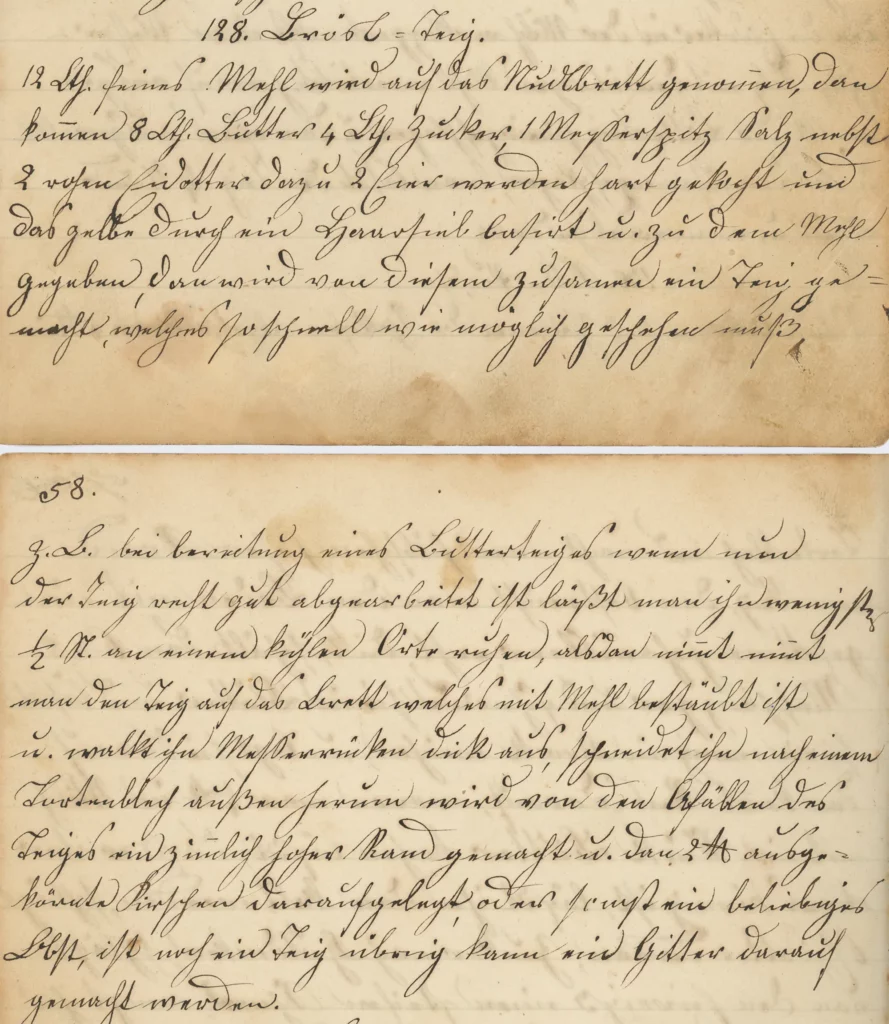 128. Brösl=Teig.
12 Lth. feines Mehl wird auf das Nudlbrett genom̄en, dan
kom̄en 8 Lth. Butter 4 Lth. Zucker, 1 Messerspitz Salz nebst
2 rohen Eidotter dazu 2 Eier werden hart gekocht und
das gelbe durch ein Haarsieb basirt u. zu dem Mehl
gegeben, dan wird von diesem zusamen ein Teig ge=
macht, welches so schnell wie möglich geschehen muß
58.
z. B. bei bereitung eines Butterteiges wenn nun
der Teig recht gut abgearbeitet ist läßt man ihn wenigst
½ St. an einem kühlen Orte ruhen, alsdan nim̄t nim̄t
man den Teig auf das Brett welches mit Mehl bestäubt ist
u. walkt ihn Messerrücken dick aus, schneidet ihn nach einem
Tortenblech außen herum wird von den Afällen des
Teiges ein zim̄lich hoher Rand gemacht u. dan 2 ℔ ausge=
körnte Kirschen daraufgelegt, oder sonst ein beliebiges
Obst, ist noch ein Teig übrig kann ein Gitter darauf
gemacht werden.